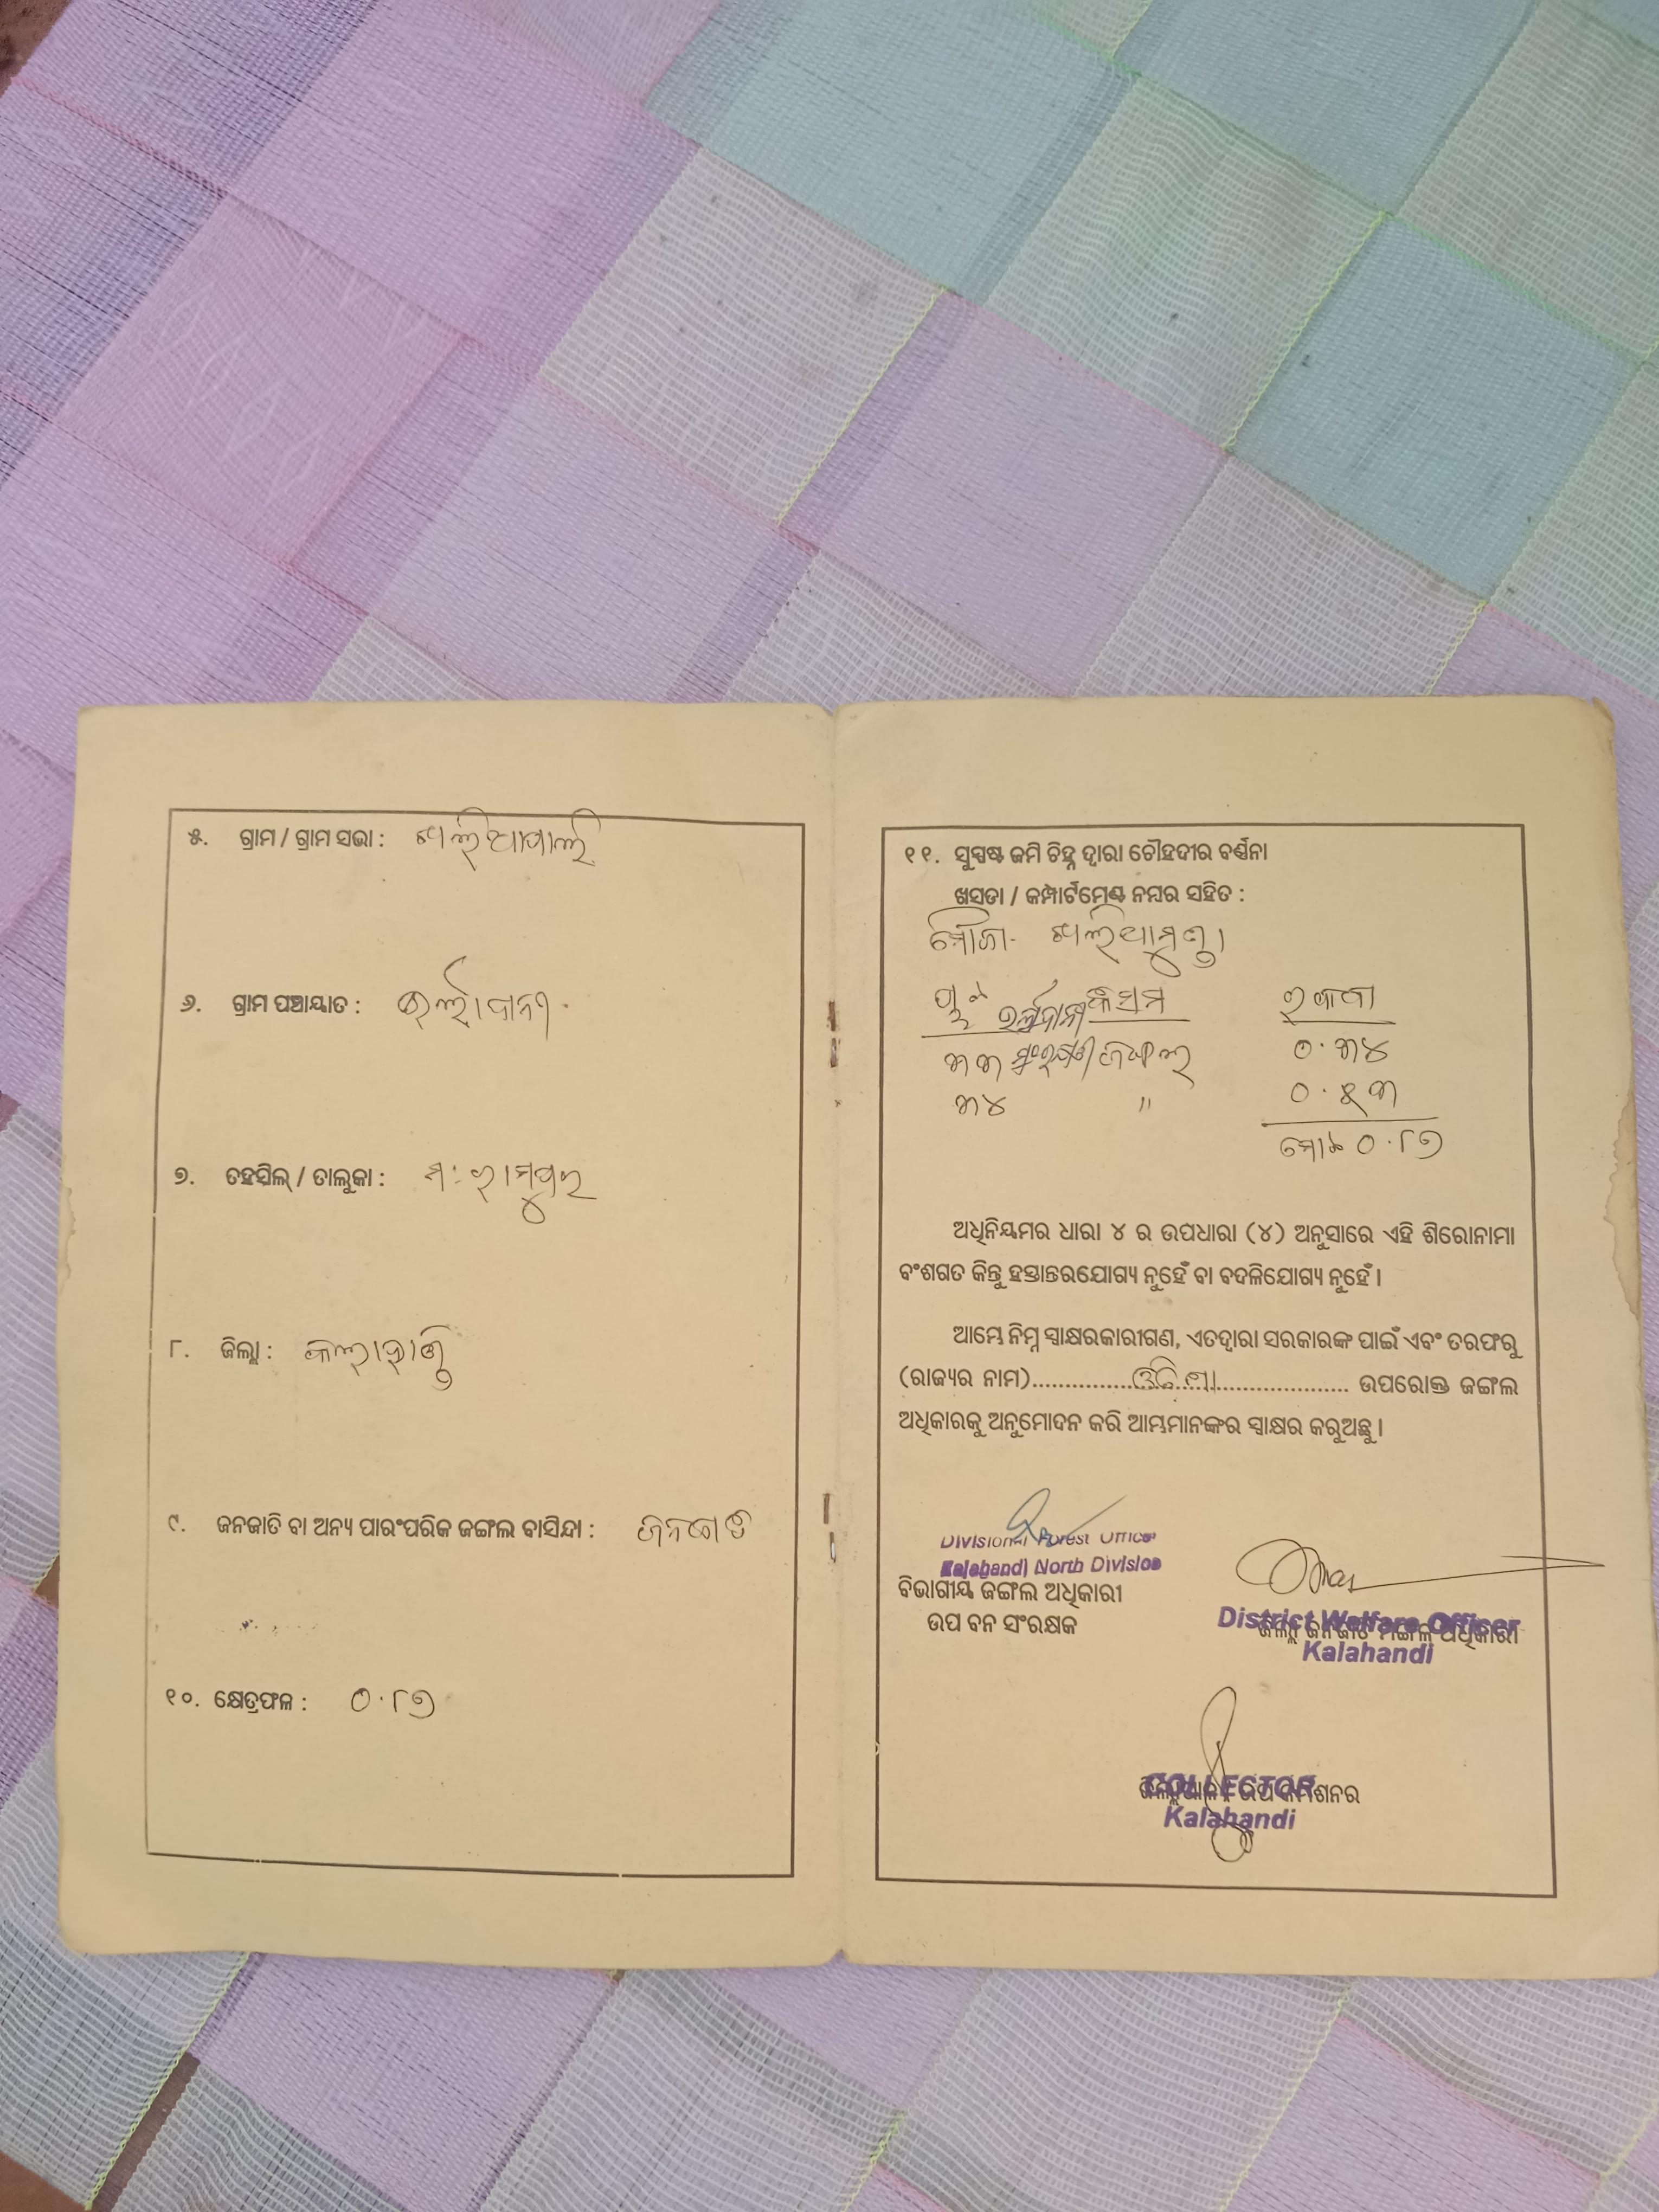 ୫. ଗ୍ରାମ / ଗ୍ରାମ ସଭା : ଖଲିଆପାଲି
୬. ଗ୍ରାମ ପଞ୍ଚାୟାତ :
୭. ତହସିଲ୍ / ତାଲୁକା : ମ: ରାମପୁର
୮. ଜିଲ୍ଲା : କଳାହାଣ୍ଡି
୯. ଜନଜାତି ବା ଅନ୍ୟ ପାରଂପରିକ ଜଙ୍ଗଲ ବାସିନ୍ଦା : ଜନଜାତି
୧୦. କ୍ଷେତ୍ରଫଳ : ୦.୮୭
୧୧. ସୁସ୍ପଷ୍ଟ ଜମି ଚିହ୍ନ ଦ୍ୱାରା ଚୌହଦୀର ବର୍ଣ୍ଣନା
ଖସଡା / କମ୍ପାର୍ଟମେଣ୍ଟ ନମ୍ବର ସହିତ :
ମୌଜା- ଖଲିଆମୁଣ୍ଡା
ପ୍ଲଟ କିସମ ରକବା
୩୩ ଜଙ୍ଗଲ ୦.୩୪
୩୪ " ୦.୫୩
ମୋଟ ୦.୮୭
ଅଧିନିୟମର ଧାରା ୪ ର ଉପଧାରା (୪) ଅନୁସାରେ ଏହି ଶିରୋନାମା
ବଂଶଗତ କିନ୍ତୁ ହସ୍ତାନ୍ତରଯୋଗ୍ୟ ନୁହେଁ ବା ବଦଳିଯୋଗ୍ୟ ନୁହେଁ ।
ଆମ୍ଭେ ନିମ୍ନ ସ୍ୱାକ୍ଷରକାରୀଗଣ, ଏତଦ୍ୱାରା ସରକାରଙ୍କ ପାଇଁ ଏବଂ ତରଫରୁ
(ରାଜ୍ୟର ନାମ)..................ଓଡିଶା.................... ଉପରୋକ୍ତ ଜଙ୍ଗଲ
ଅଧିକାରକୁ ଅନୁମୋଦନ କରି ଆମ୍ଭମାନଙ୍କର ସ୍ୱାକ୍ଷର କରୁଅଛୁ ।
Divisional Forest Officer
Kalahandi North Division
ବିଭାଗୀୟ ଜଙ୍ଗଲ ଅଧିକାରୀ
ଉପ ବନ ସଂରକ୍ଷକ
District Welfare Officer
ଜିଲ୍ଲା ଜନଜାତି ମଙ୍ଗଳ ଅଧିକାରୀ
Kalahandi
COLLECTOR
ଜିଲ୍ଲାପାଳ ଉପ କମିଶନର
Kalahandi